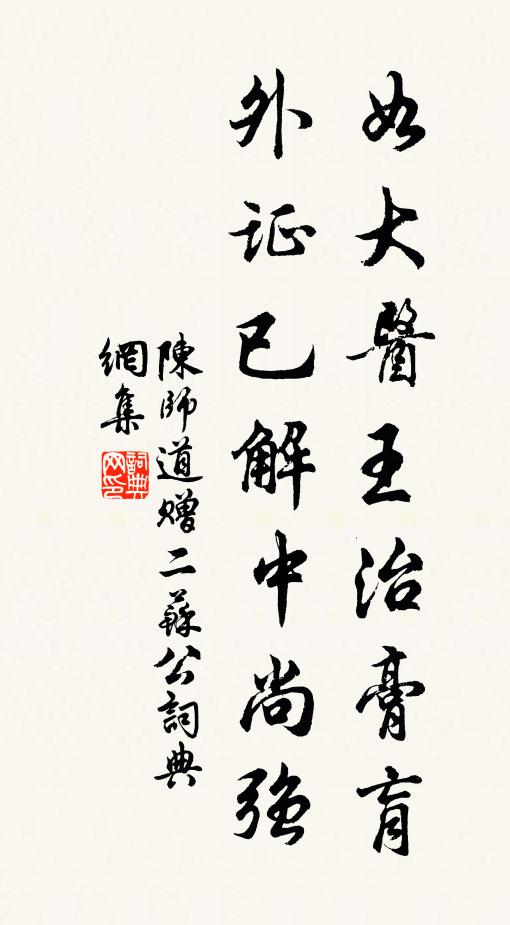 如大醫王治膏肓
外证已解中尚强
陳師道赠二蘇公詞典
網集
詞典网印